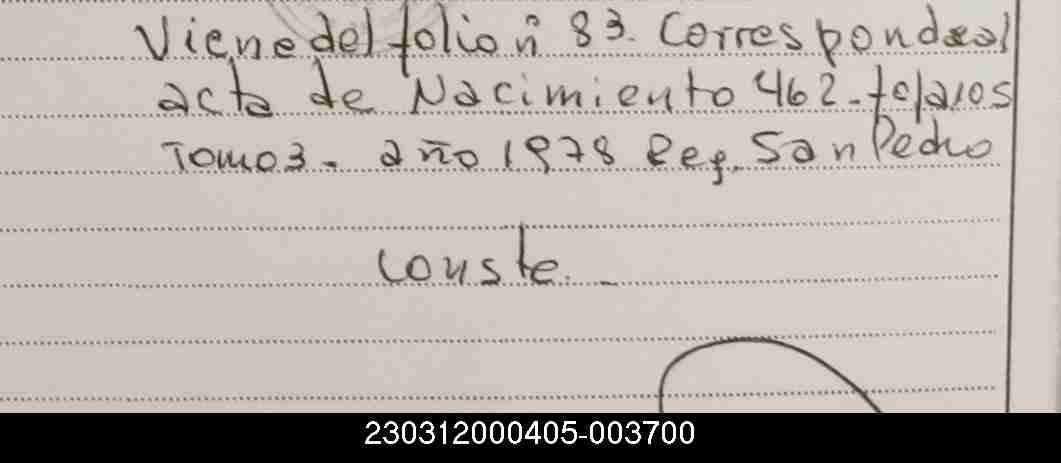 Viene del folio nº 83. Corresponde al
acta de Nacimiento 462.
Tomo 3. año 1978 Reg. San Pedro
conste.
230312000405-003700